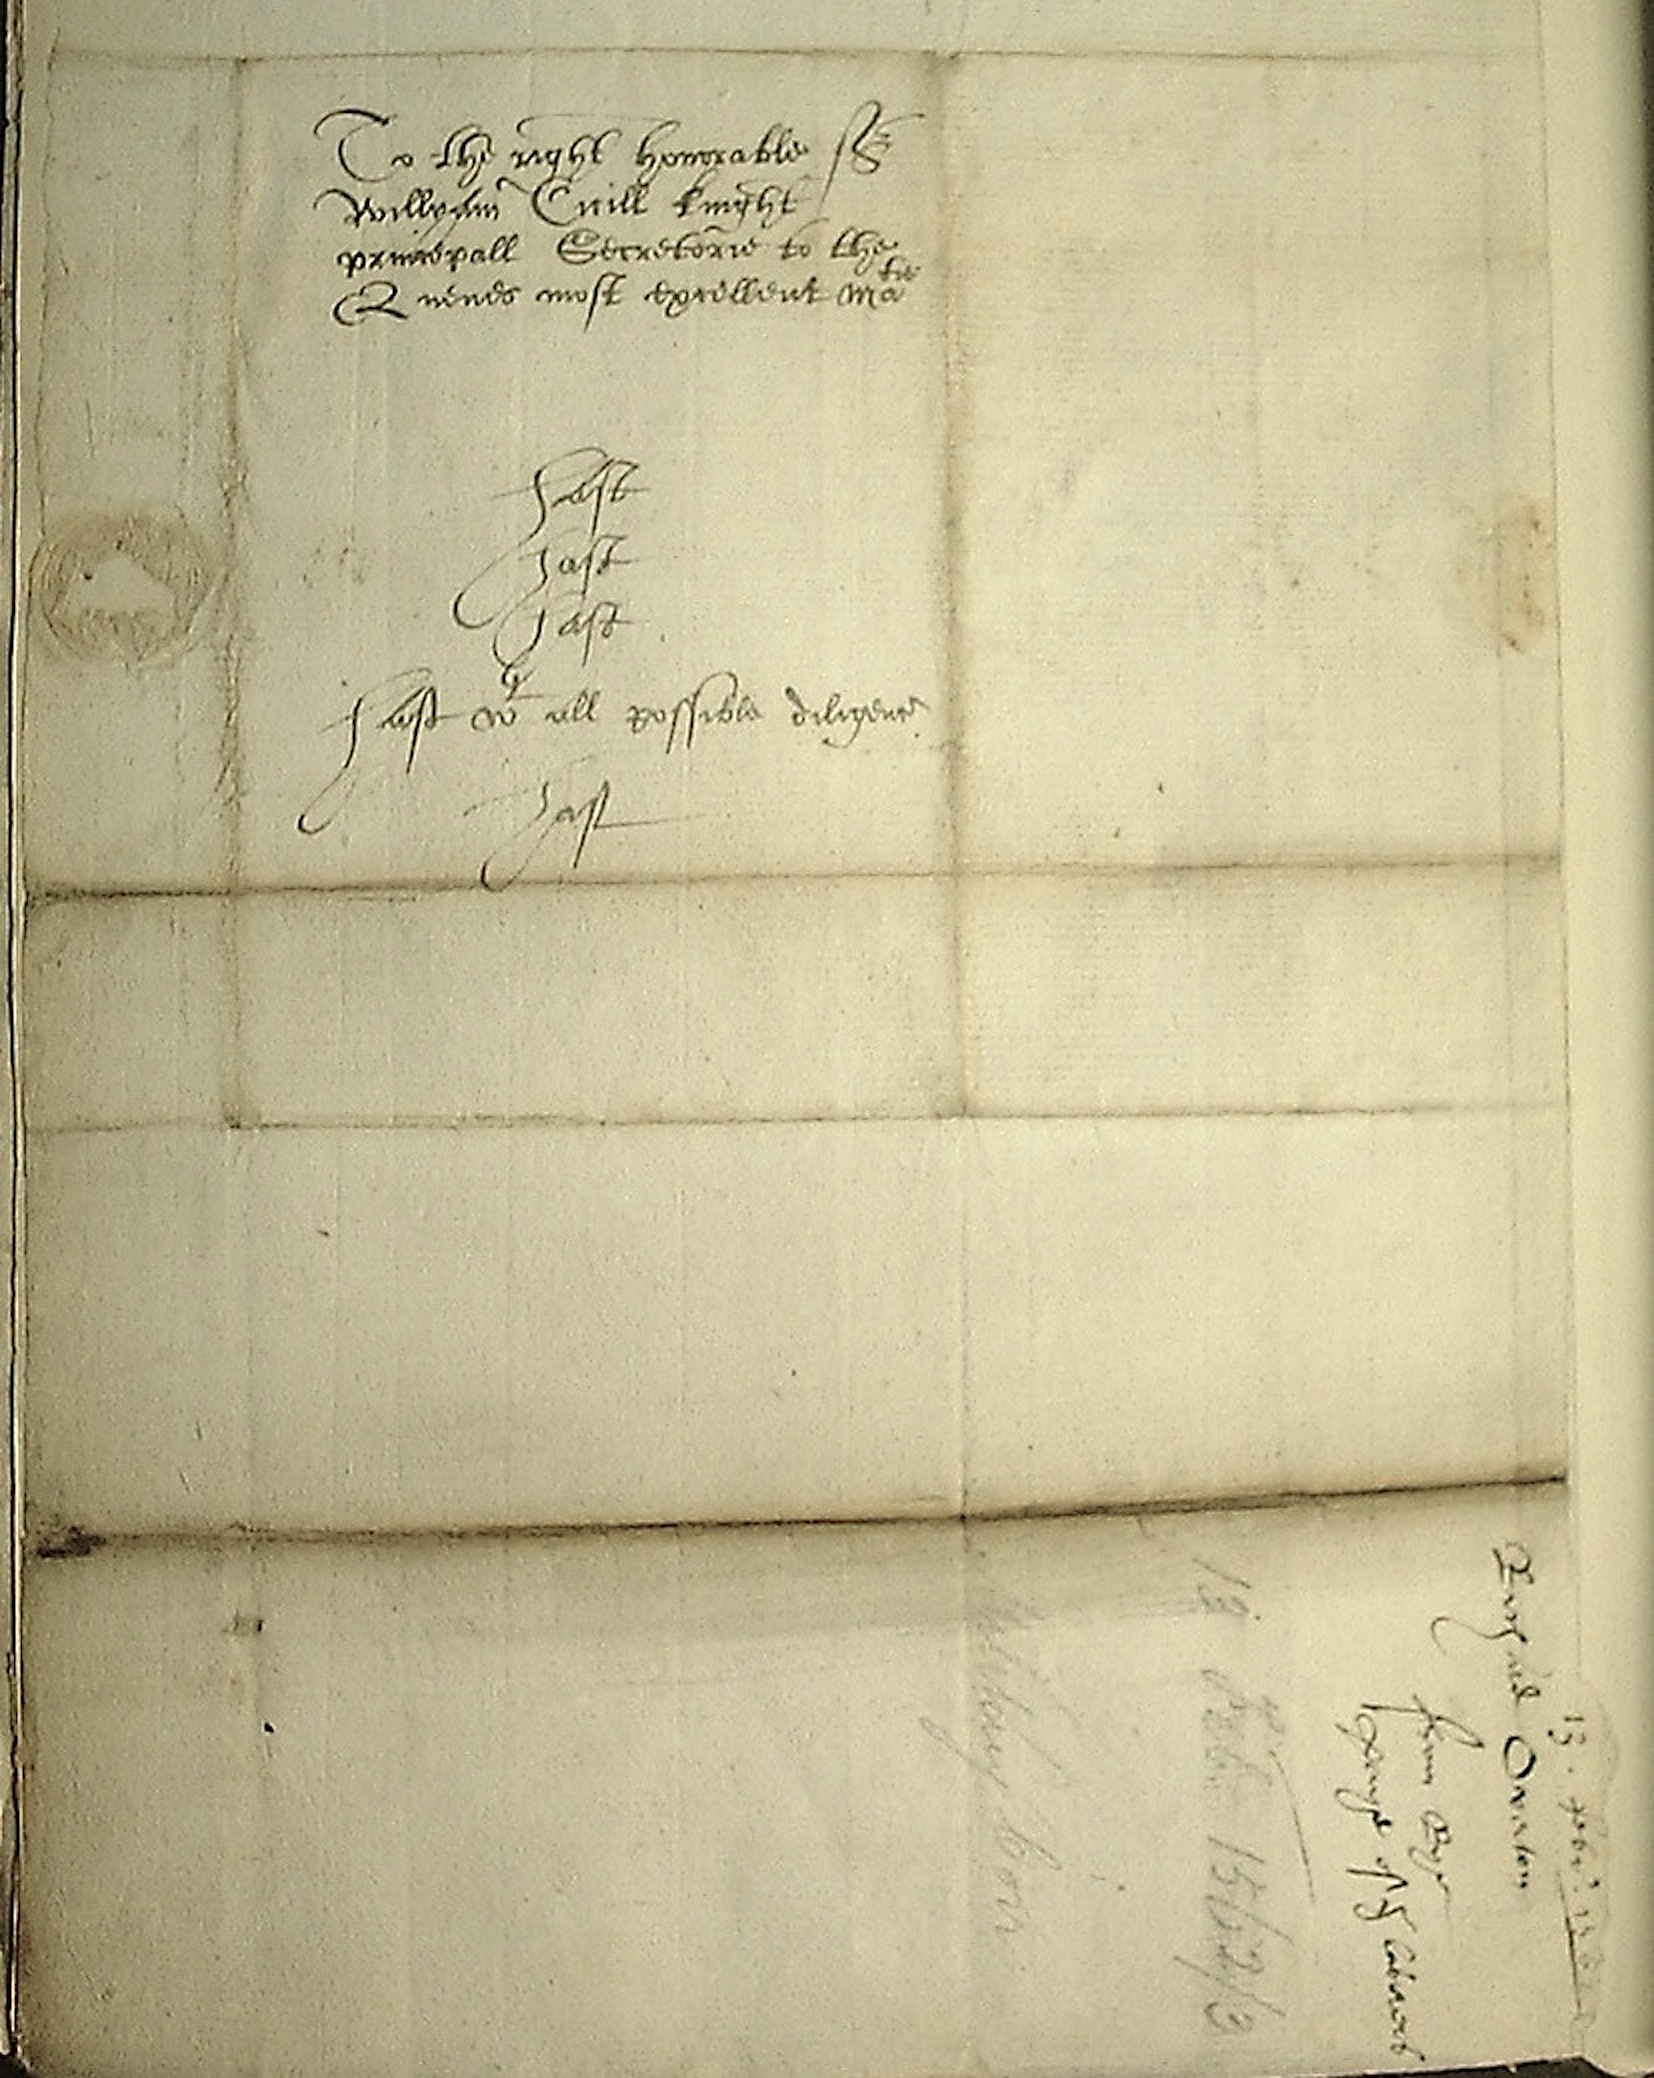 To the right honorable Sr
Willyam Cicill knight
principall Secretorie to the
Quenes most excellent Matie
Hast
Hast
Hast
Hast wt all possible diligence
Hast
13 Feb. 1562/3
from
of ye
13. febr.